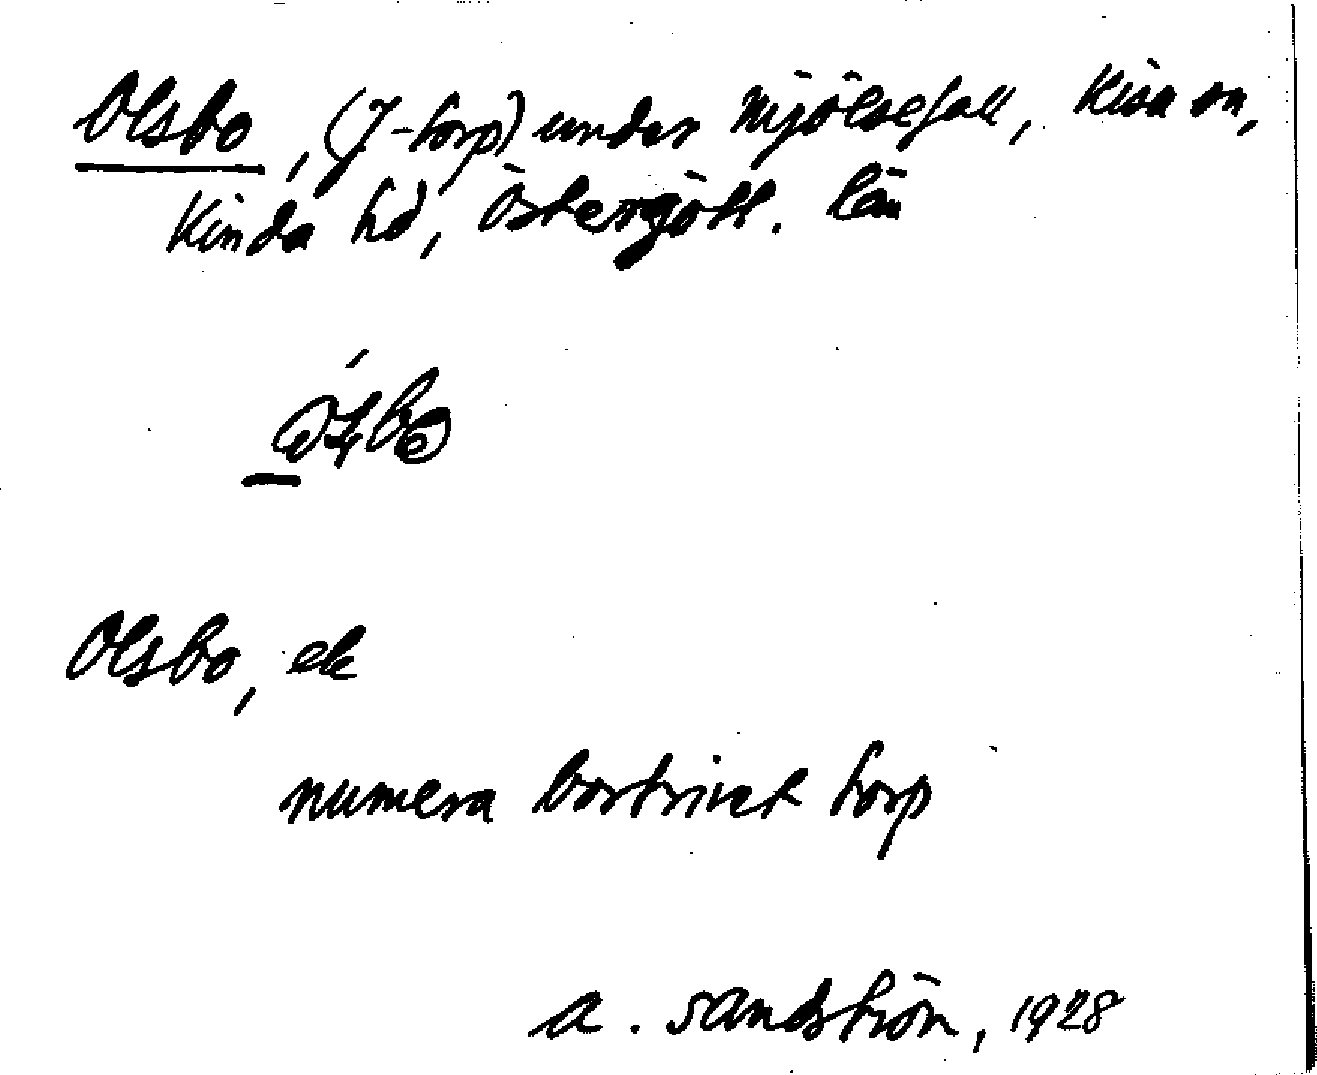 Olsbo, (J-torp) under Mjölsefall, Kisa sn,
Kinda hd, Östergötl. län
Olsbo, ek
numera bortrivet torp
A. Sandström, 1928